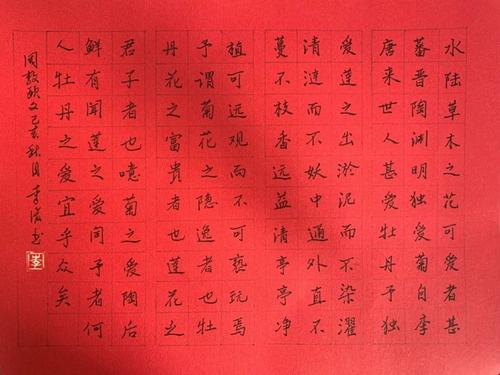 水陆草木之花可爱者甚
蕃晋陶渊明独爱菊自李
唐来世人甚爱牡丹予独
爱莲之出淤泥而不染濯
清涟而不妖中通外直不
蔓不枝香远益清亭亭净
植可远观而不可亵玩焉
予谓菊花之隐逸者也牡
丹花之富貴者也莲花之
君子者也噫菊之爱陶后
鲜有闻莲之爱同予者何
人牡丹之爱宜乎众矣
周敦颐文己亥秋月李书
李